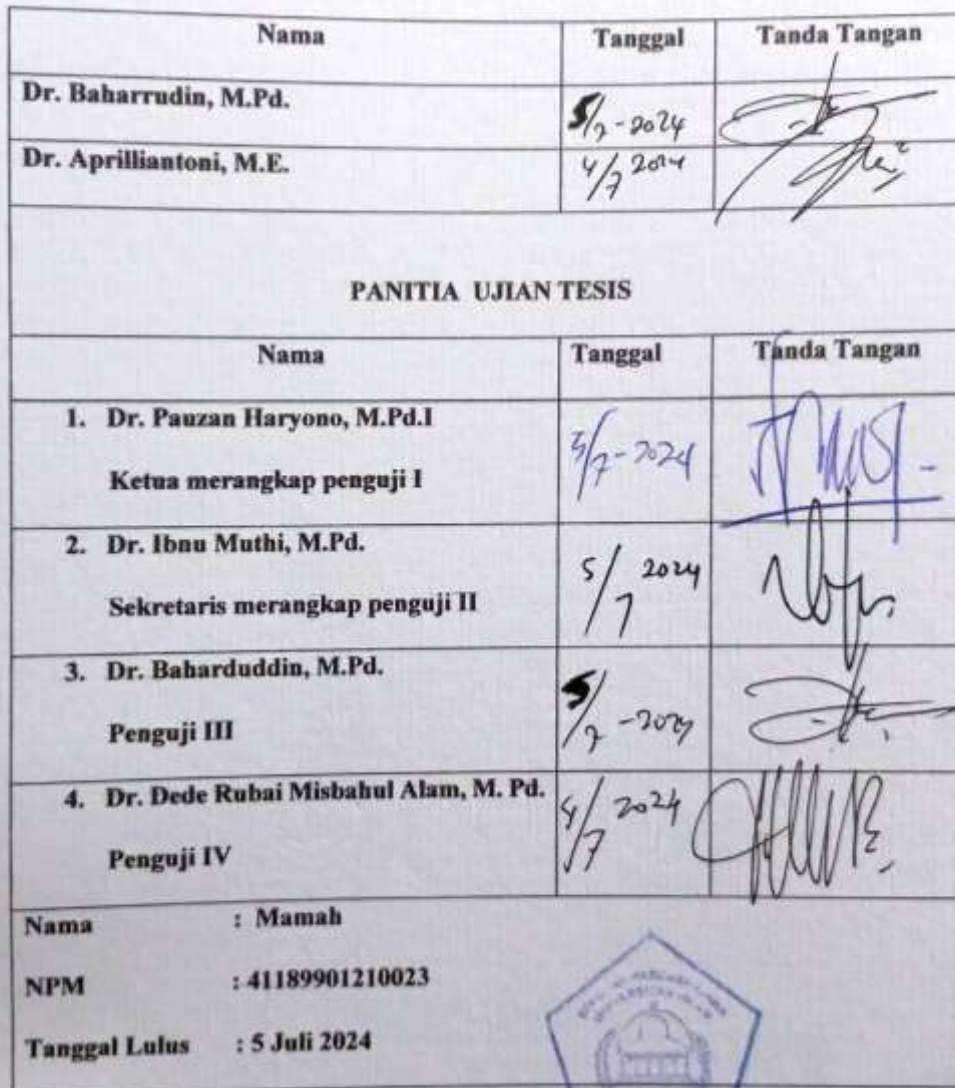 Nama Tanggal Tanda Tangan
Dr. Baharrudin, M.Pd. 5/7-2024
Dr. Aprilliantoni, M.E. 4/7 2024
PANITIA UJIAN TESIS
Nama Tanggal Tanda Tangan
1. Dr. Pauzan Haryono, M.Pd.I 5/7-2024
Ketua merangkap penguji I
2. Dr. Ibnu Muthi, M.Pd. 5/7 2024
Sekretaris merangkap penguji II
3. Dr. Baharduddin, M.Pd. 5/7-2024
Penguji III
4. Dr. Dede Rubai Misbahul Alam, M. Pd. 2024
Penguji IV
Nama : Mamah
NPM : 41189901210023
Tanggal Lulus : 5 Juli 2024